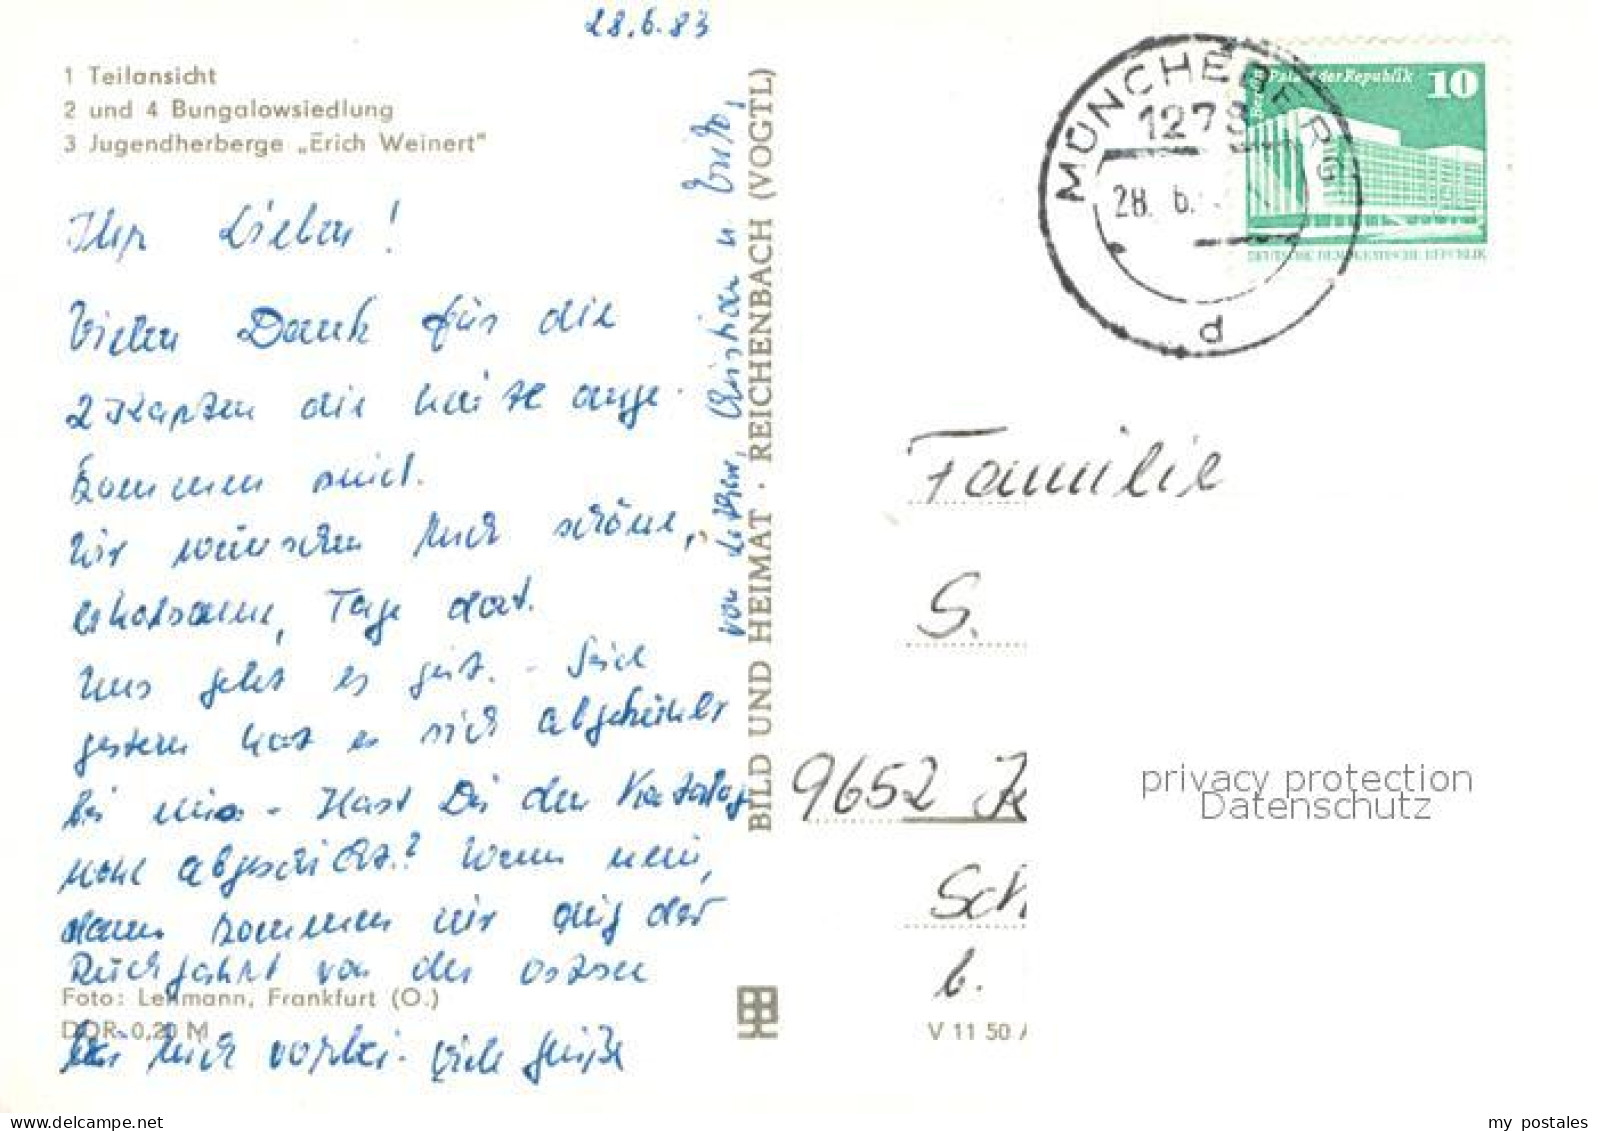 28.6.83
1 Teilansicht
2 und 4 Bungalowsiedlung
3 Jugendherberge „Erich Weinert"
Ihr Lieben!
Vielen Dank für die
2 Karten die heute ange-
kommen sind.
Wir wünschen Euch schöne,
erholsame, Tage dort.
Uns geht es gut. - Seid
gestern hat es sich abgekühlt
bei uns - Hast Du den Katalog
wohl abgeschickt? Wenn nein,
dann kommen wir auf der
Rückfahrt von der Ostsee
bei Euch vorbei. Viele Grüße
von Lothar, Christian u.
Foto: Lehmann, Frankfurt (O.)
DDR 0,20 M
BILD UND HEIMAT · REICHENBACH (VOGTL)
V 11 50 A
MÜNCHEBERG
1278
28. 6.
d
Berlin, Palast der Republik
10
DEUTSCHE DEMOKRATISCHE REPUBLIK
Familie
S.
9652
Sch
b.
privacy protection
Datenschutz
delcampe.net
my_postales